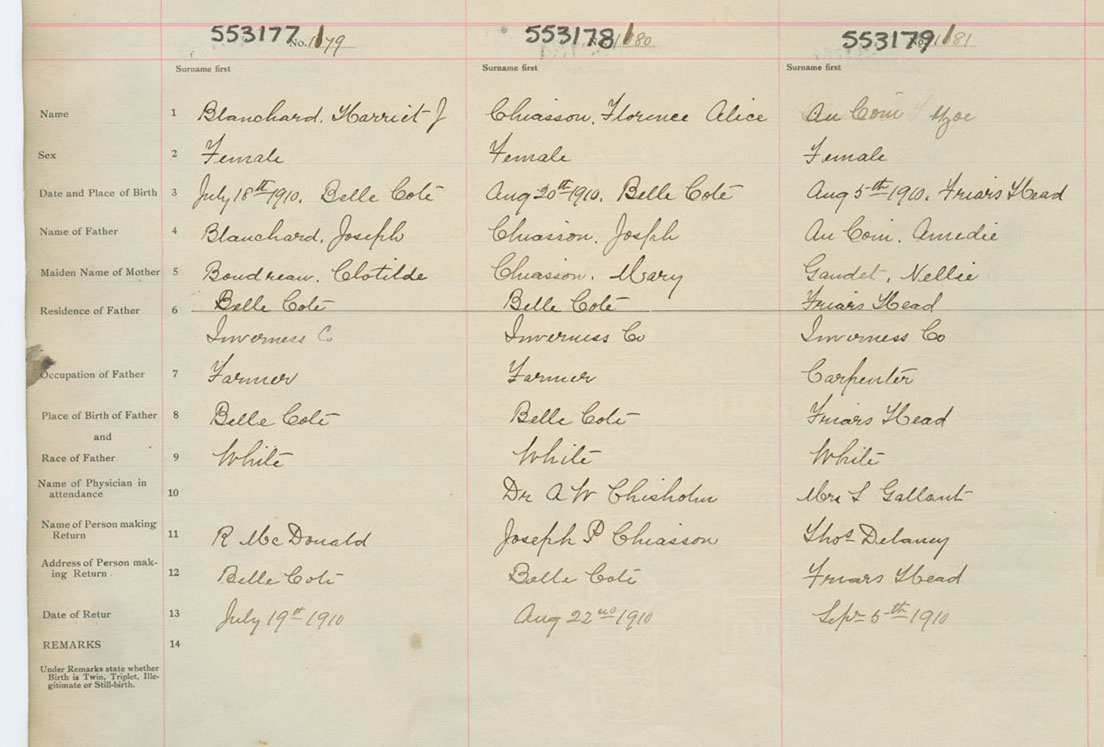 553177 553178 553179
No. 1179 No. 1180 No. 1181
Surname first Surname first Surname first
Name 1 Blanchard. Harriet J Chiasson. Florence Alice Au Coin
Sex 2 Female Female Female
Date and Place of Birth 3 July 18th 1910. Belle Coté Aug 20th 1910. Belle Coté Aug 5th 1910. Friars Head
Name of Father 4 Blanchard. Joseph Chiasson. Josph Au Coin. Amedie
Maiden Name of Mother 5 Boudreau. Clotilde Chiasson. Mary Gaudet. Nellie
Residence of Father 6 Belle Coté Belle Coté Friars Head
Inverness C Inverness Co Inverness Co
Occupation of Father 7 Farmer Farmer Carpenter
Place of Birth of Father 8 Belle Coté Belle Coté Friars Head
and
Race of Father 9 White White White
Name of Physician in
attendance 10 Dr A W Chisholm Mrs S Gallant
Name of Person making
Return 11 R McDonald Joseph P Chiasson Thos Delaney
Address of Person mak-
ing Return 12 Belle Coté Belle Coté Friars Head
Date of Retur 13 July 19th 1910 Aug 22nd 1910 Sept 5th 1910
REMARKS 14
Under Remarks state whether
Birth is Twin, Triplet, Ille-
gitimate or Still-birth.